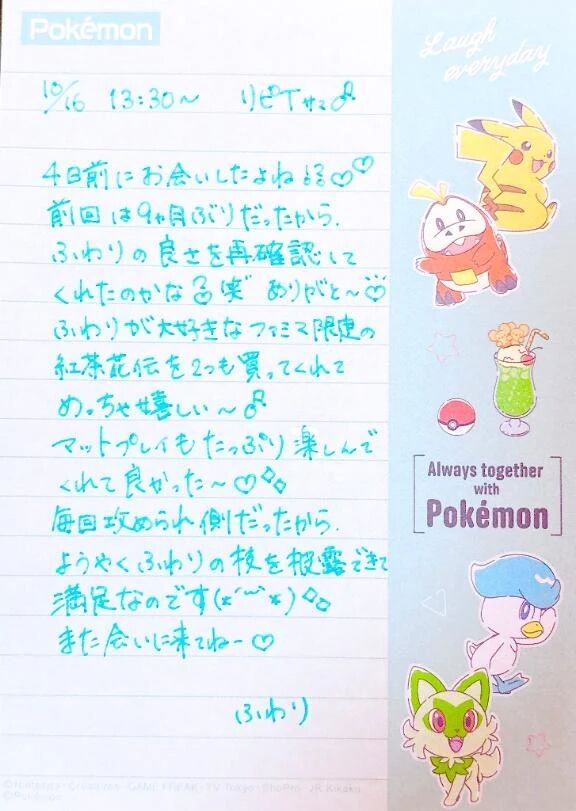 Pokémon
Laugh
everyday
10/16 13:30～ リピTサマ♂
4日前にお会いしたよね♡♡
前回は9ヶ月ぶりだったから、
ふわりの良さを再確認して
くれたのかな 笑 ありがと～♡
ふわりが大好きなファミマ限定の
紅茶花伝を2つも買ってくれて
めっちゃ嬉しい～
マットプレイもたっぷり楽しんで
くれて良かった～♡
毎回攻められ側だったから、
ようやくふわりの技を披露できて
満足なのです(*˘︶˘*)
また会いに来てねー♡
ふわり
Always together
with
Pokémon
©Nintendo・Creatures・GAME FREAK・TV Tokyo・ShoPro・JR Kikaku
©Pokémon